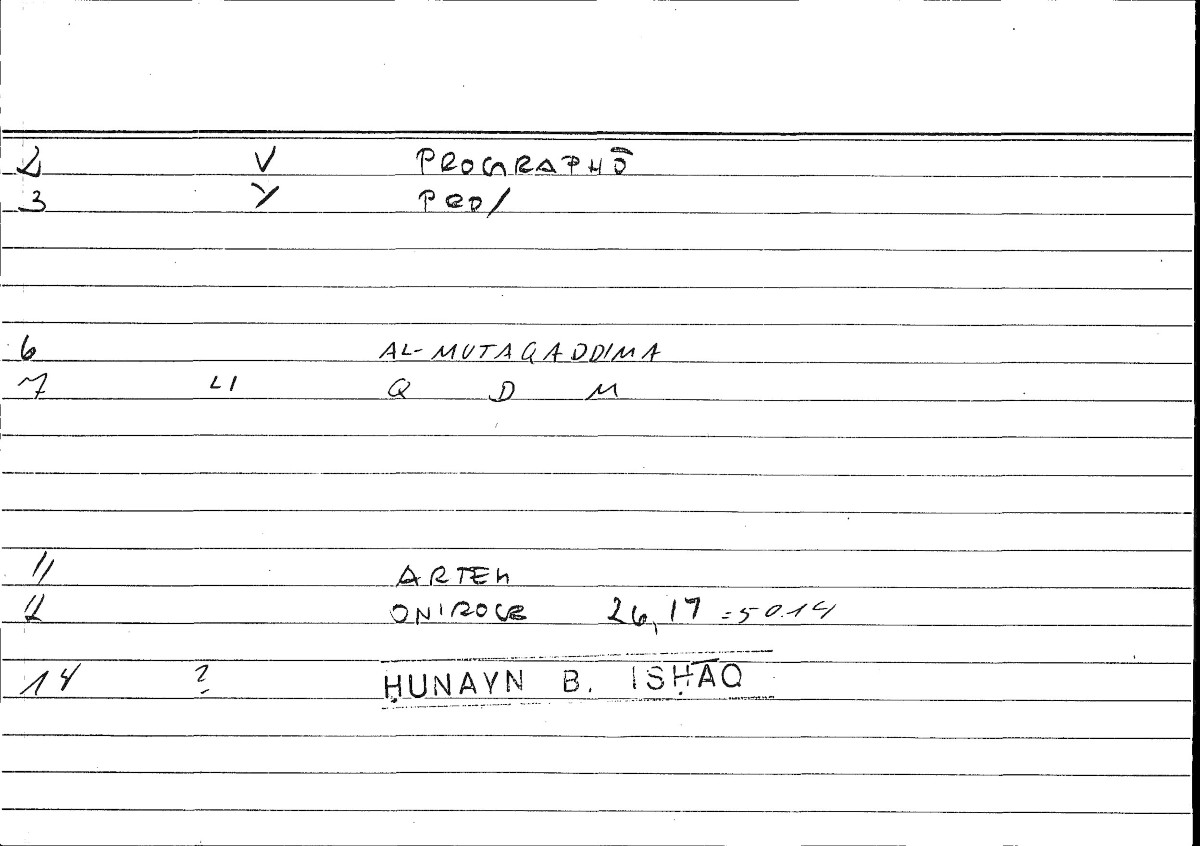 2 V PROGRAPHŌ
3 Y PRO/
6 AL-MUTAQADDIMA
7 LI Q D M
11 ARTEM
12 ONIROCR 26,17 =50.14
14 ? ḤUNAYN B. ISḤĀQ